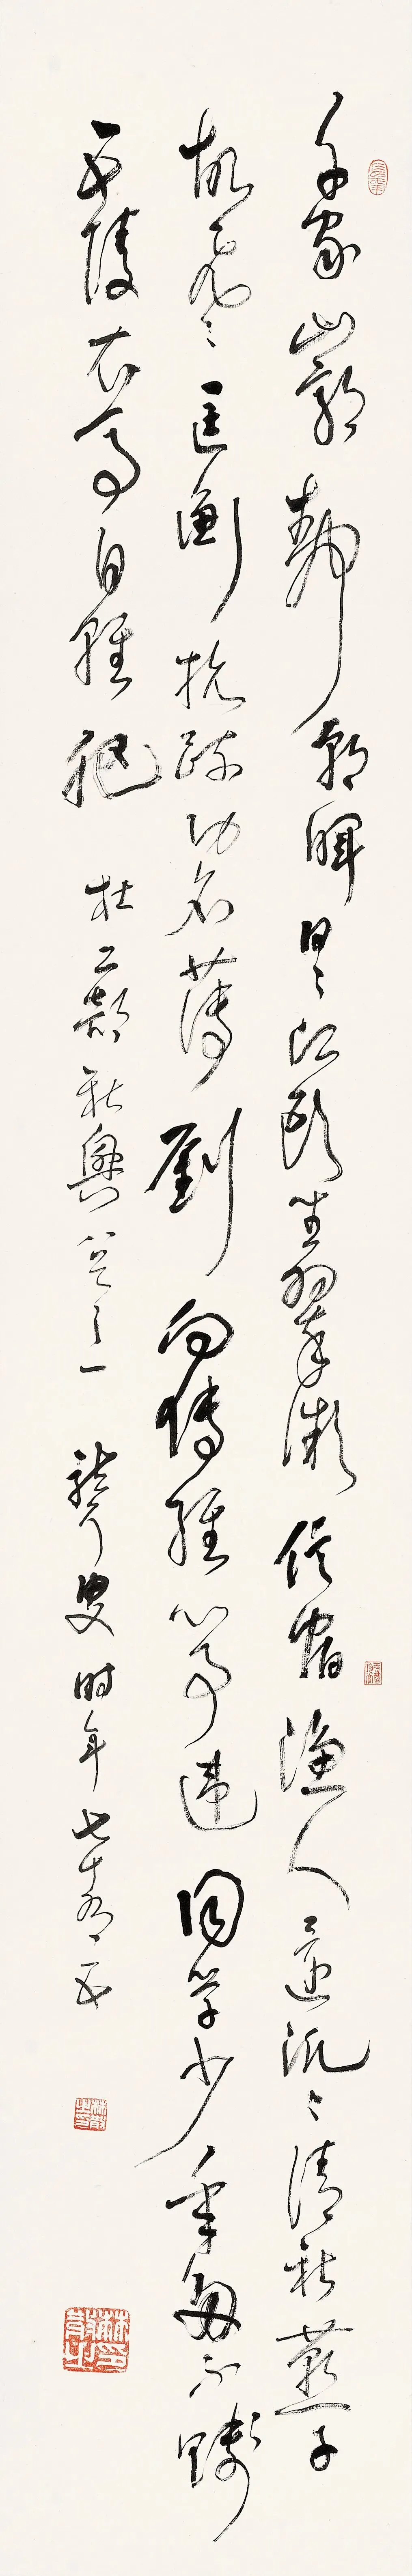 千家山郭静朝晖日々江头坐翠微信宿渔人还汎々清秋燕子
故飞々匡衡抗疏功名薄刘向传经心事违同学少年多不贱
五陵衣马自轻肥 杜工部秋兴八首之一 聋叟时年七十有五
林散之印